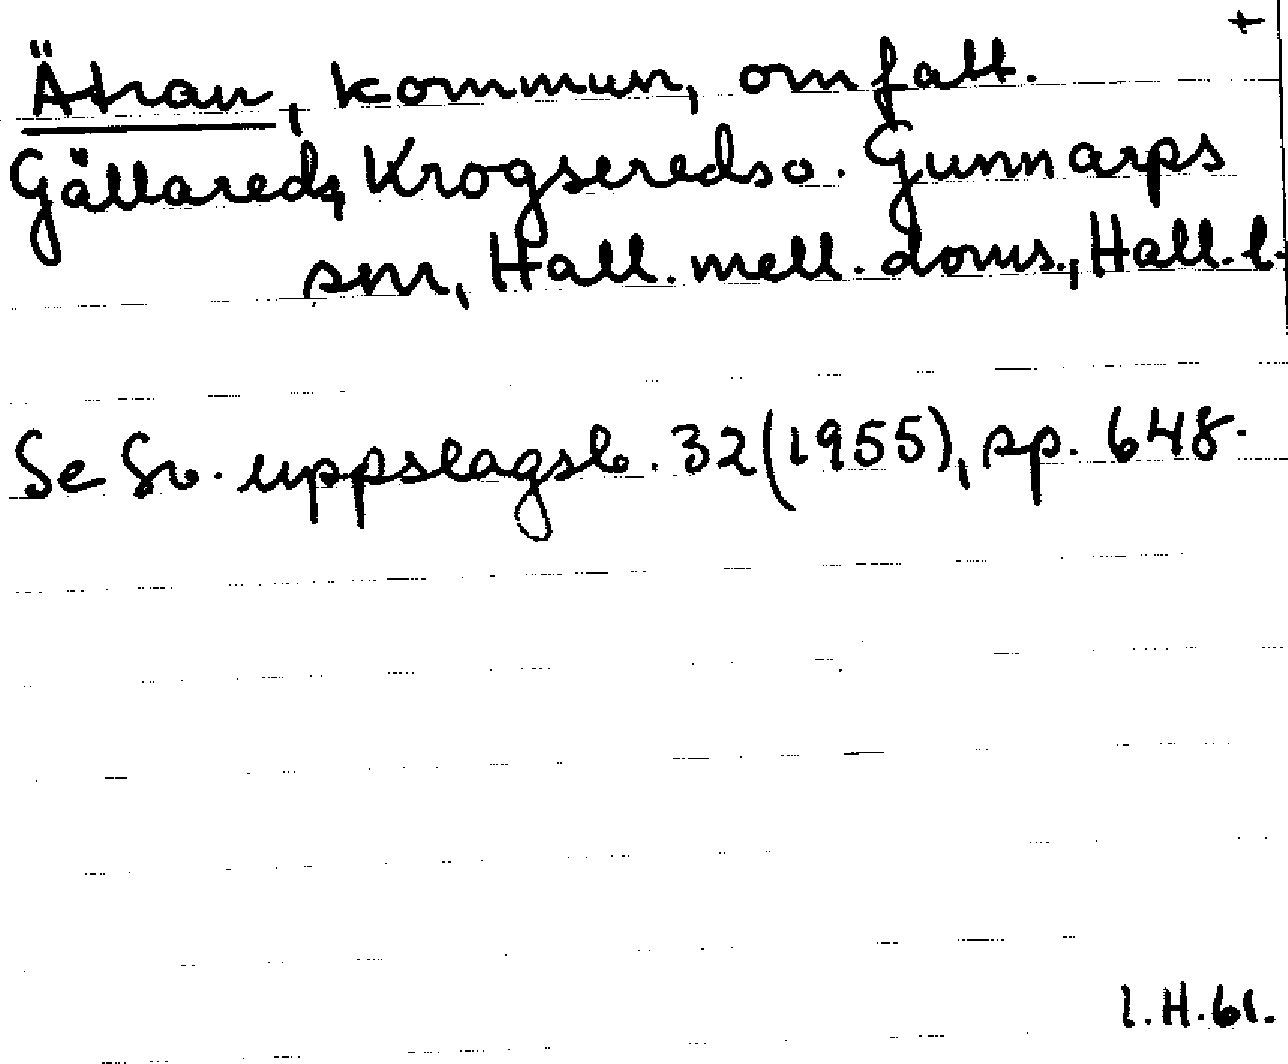 +
Ätran, kommun, omfatt.
Gällareds, Krogsereds o. Gunnarps
snr, Hall. mell. doms., Hall. l.
Se Sv. uppslagsb. 32 (1955), sp. 648.
I.H.61.